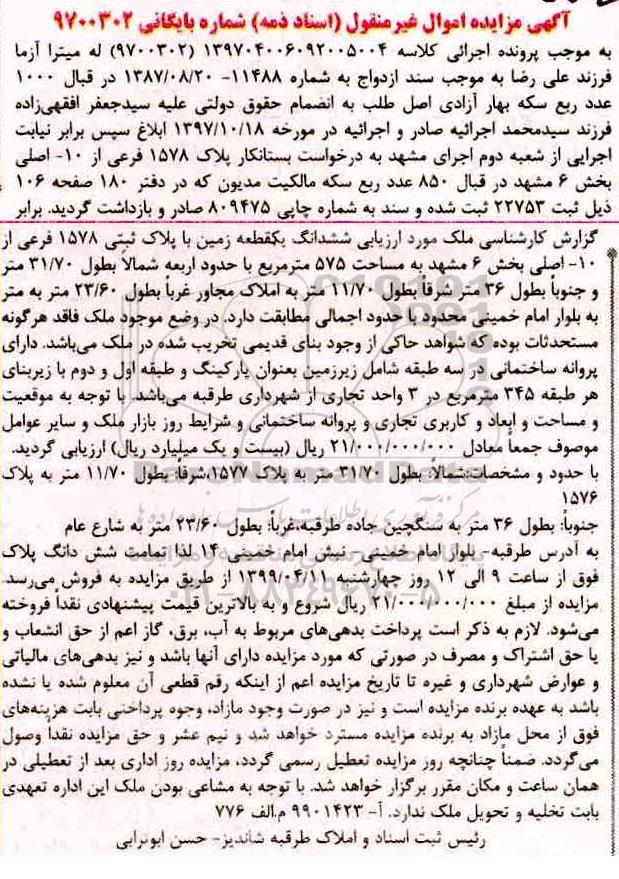 آگهی مزایده اموال غیرمنقول (اسناد ذمه) شماره بایگانی ۹۷۰۰۳۰۲
به موجب پرونده اجرائی کلاسه ۱۳۹۷۰۴۰۰۶۰۹۲۰۰۵۰۰۴ (۹۷۰۰۳۰۲) له میترا آزما
فرزند علی رضا به موجب سند ازدواج به شماره ۱۱۴۸۸- ۱۳۸۷/۰۸/۲۰ در قبال ۱۰۰۰
عدد ربع سکه بهار آزادی اصل طلب به انضمام حقوق دولتی علیه سیدجعفر افقهی‌زاده
فرزند سیدمحمد اجرائیه صادر و اجرائیه در مورخه ۱۳۹۷/۱۰/۱۸ ابلاغ سپس برابر نیابت
اجرایی از شعبه دوم اجرای مشهد به درخواست بستانکار پلاک ۱۵۷۸ فرعی از ۱۰- اصلی
بخش ۶ مشهد در قبال ۸۵۰ عدد ربع سکه مالکیت مدیون که در دفتر ۱۸۰ صفحه ۱۰۶
ذیل ثبت ۲۲۷۵۳ ثبت شده و سند به شماره چاپی ۸۰۹۴۷۵ صادر و بازداشت گردید. برابر
گزارش کارشناسی ملک مورد ارزیابی ششدانگ یکقطعه زمین با پلاک ثبتی ۱۵۷۸ فرعی از
۱۰- اصلی بخش ۶ مشهد به مساحت ۵۷۵ مترمربع با حدود اربعه شمالاً بطول ۳۱/۷۰ متر
و جنوباً بطول ۳۶ متر شرقاً بطول ۱۱/۷۰ متر به املاک مجاور غرباً بطول ۲۳/۶۰ متر به متر
به بلوار امام خمینی محدود با حدود اجمالی مطابقت دارد. در وضع موجود ملک فاقد هرگونه
مستحدثات بوده که شواهد حاکی از وجود بنای قدیمی تخریب شده در ملک می‌باشد. دارای
پروانه ساختمانی در سه طبقه شامل زیرزمین بعنوان پارکینگ و طبقه اول و دوم با زیربنای
هر طبقه ۳۴۵ مترمربع در ۳ واحد تجاری از شهرداری طرقبه می‌باشد. با توجه به موقعیت
و مساحت و ابعاد و کاربری تجاری و پروانه ساختمانی و شرایط روز بازار ملک و سایر عوامل
موصوف جمعاً معادل ۲۱/۰۰۰/۰۰۰/۰۰۰ ریال (بیست و یک میلیارد ریال) ارزیابی گردید.
با حدود و مشخصات:شمالاً: بطول ۳۱/۷۰ متر به پلاک ۱۵۷۷،شرقاً: بطول ۱۱/۷۰ متر به پلاک
۱۵۷۶
جنوباً: بطول ۳۶ متر به سنگچین جاده طرقبه،غرباً: بطول ۲۳/۶۰ متر به شارع عام
به آدرس طرقبه- بلوار امام خمینی- نبش امام خمینی ۱۴ لذا تمامت شش دانگ پلاک
فوق از ساعت ۹ الی ۱۲ روز چهارشنبه ۱۳۹۹/۰۴/۱۱ از طریق مزایده به فروش می‌رسد.
مزایده از مبلغ ۲۱/۰۰۰/۰۰۰/۰۰۰ ریال شروع و به بالاترین قیمت پیشنهادی نقداً فروخته
می‌شود. لازم به ذکر است پرداخت بدهی‌های مربوط به آب، برق، گاز اعم از حق انشعاب و
یا حق اشتراک و مصرف در صورتی که مورد مزایده دارای آنها باشد و نیز بدهی‌های مالیاتی
و عوارض شهرداری و غیره تا تاریخ مزایده اعم از اینکه رقم قطعی آن معلوم شده یا نشده
باشد به عهده برنده مزایده است و نیز در صورت وجود مازاد، وجوه پرداختی بابت هزینه‌های
فوق از محل مازاد به برنده مزایده مسترد خواهد شد و نیم عشر و حق مزایده نقداً وصول
می‌گردد. ضمناً چنانچه روز مزایده تعطیل رسمی گردد، مزایده روز اداری بعد از تعطیلی در
همان ساعت و مکان مقرر برگزار خواهد شد. با توجه به مشاعی بودن ملک این اداره تعهدی
بابت تخلیه و تحویل ملک ندارد. آ- ۹۹۰۱۴۲۳ م.الف ۷۷۶
رئیس ثبت اسناد و املاک طرقبه شاندیز- حسن ابوترابی